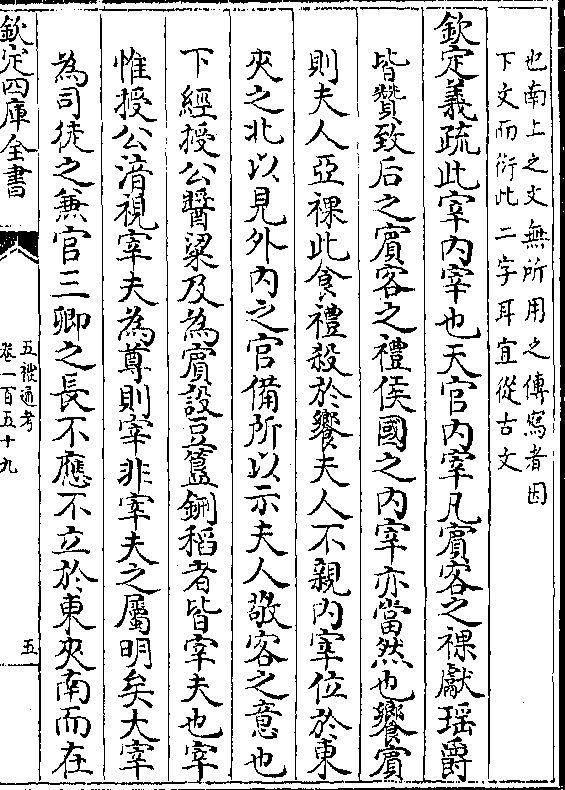 也南上之文無所用之傳寫者因
下文而衍此二字耳宜從古文
欽定義疏此宰内宰也天官内宰凡賓客之祼獻瑶爵
皆贊致后之賓客之禮侯國之内宰亦當然也饗賓
則夫人亞祼此食禮殺於饗夫人不親内宰位於東
夾之北以見外内之官備所以示夫人敬客之意也
下經授公醬粱及為賓設豆簋鉶稻者皆宰夫也宰
惟授公湆視宰夫為尊則宰非宰夫之屬明矣大宰
為司徒之兼官三卿之長不應不立於東夾南而在
欽定四庫全書
五禮通考
卷一百五十九
五